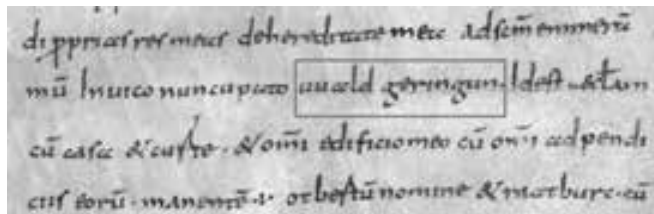 di pprias res meas dehereditate mea ad scm emmerā
mū In uico nuncupato uuald geringun. Idest
cū casa & cur te. & omi edificio meo cū omi ad pendi
ciis eorū. manentē. nomine & ratburc. cū